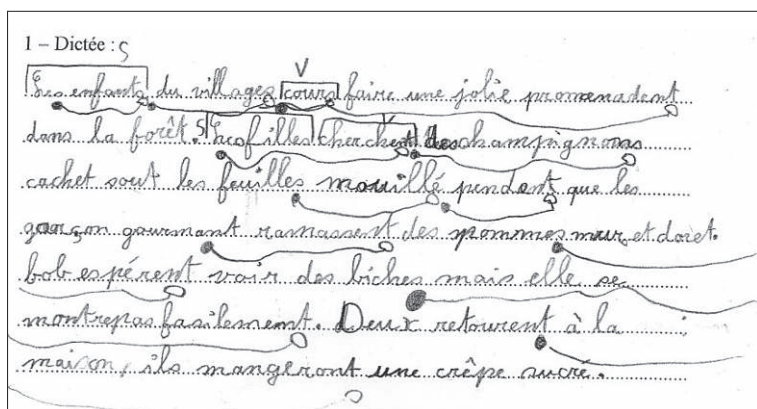 1 – Dictée : S
V
Les enfants du villages cours faire une jolie promenadent
dans la forêt. S Les filles cherchent des champignons V
cachet sout les feuilles mouillé pendent que les
garçon gourmant ramassent des pommes mur et doret.
bob espérent voir des biches mais elle se
montre pas fasilement. Deux retourent à la
maison, ils mangeront une crêpe sucré.